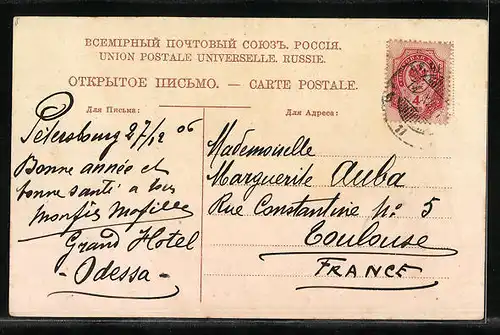 ВСЕМІРНЫЙ ПОЧТОВЫЙ СОЮЗЪ. РОССІЯ.
UNION POSTALE UNIVERSELLE. RUSSIE.
ОТКРЫТОЕ ПИСЬМО. — CARTE POSTALE.
Для Письма:
Для Адреса:
4
Petersbourg 27/12 06
Bonne année et
bonne santé a
Grand Hotel
- Odessa -
Mademoiselle
Marguerite Auba
Rue Constantine Nº 5
Toulouse
FRANCE